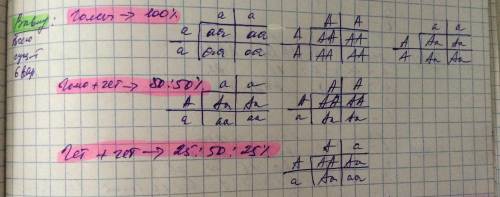 Вывод: Гомо → 100%
Всего
сущ
6 вар
a a
a aa aa
a aa aa
A A
A AA AA
A AA AA
a a
A Aa Aa
A Aa Aa
Гомо + гет → 50:50%
a a
A Aa Aa
a aa aa
A A
A AA AA
a Aa Aa
Гет + гет → 25:50:25%
A a
A AA Aa
a Aa aa